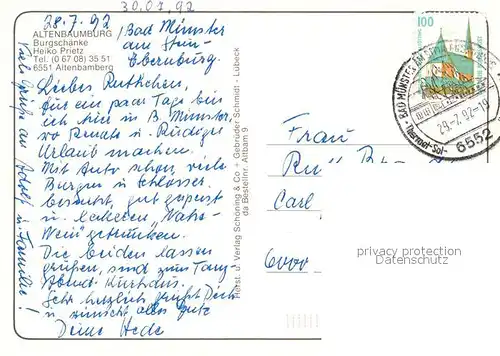 30.07.92
28.7.92
ALTENBAUMBURG
Burgschänke
Heiko Prietz
Tel. (0 67 08) 35 51
6551 Altenbamberg
Bad Münster
am Stein
Ebernburg.
Liebes Ruthchen,
für ein paar Tage bin
ich hier in B. Münster
wo Renate u. Rüdiger
Urlaub machen.
Mit Auto schon viele
Burgen u Schlösser
besucht, gut gespeist
u. leckeren "Nahe-
Wein" getrunken.
Die beiden lassen
grüßen, sind zum Tanz-
Abend Kurhaus.
Sehr herzlich grüßt Dich
u wünscht alles Gute
Deine
Viele Grüße an Adolf u. Familie!
Herst. u. Verlag Schöning & Co + Gebrüder Schmidt - Lübeck
da Bestellnr. Altbam 9
100
BAD MÜNSTER AM STEIN-EBERNBURG
29.7.92-19
6552
Frau
Carl
6000
privacy protection
Datenschutz